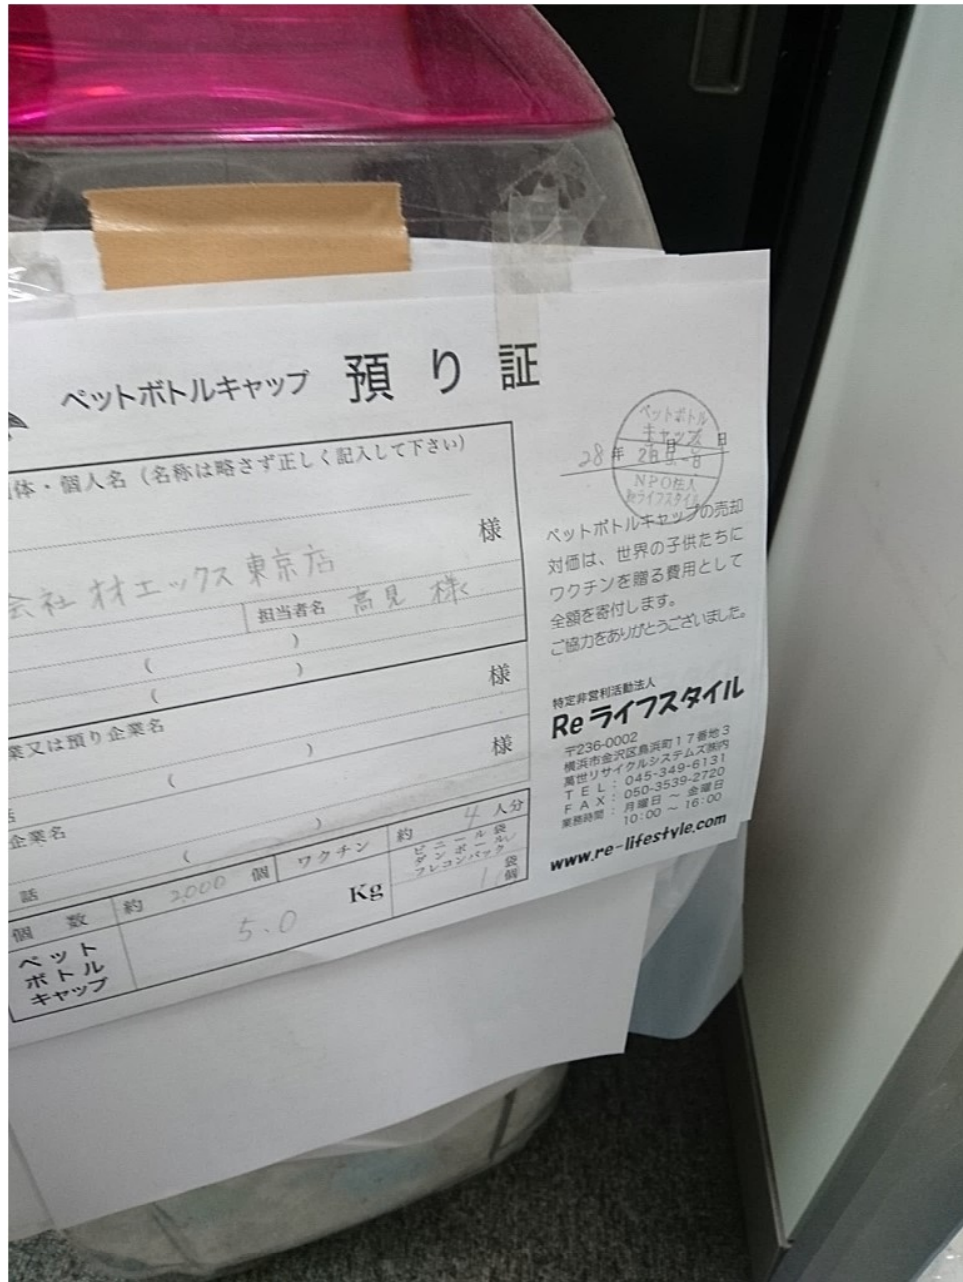 ペットボトルキャップ 預り証
体・個人名（名称は略さず正しく記入して下さい）
様
会社 オオエックス 東京店
担当者名 高見 様
( )
( )
様
業又は預り企業名
( )
様
企業名
( )
話
個数 約 2000 個 ワクチン 約 4 人分
ペット
ボトル
キャップ
5.0 Kg
ビニール袋
ダンボール
フレコンバック
1 袋
個
28年 月 日
ペットボトル
キャップ
28.9.-8
NPO法人
Reライフスタイル
ペットボトルキャップの売却
対価は、世界の子供たちに
ワクチンを贈る費用として
全額を寄付します。
ご協力をありがとうございました。
特定非営利活動法人
Re ライフスタイル
〒236-0002
横浜市金沢区鳥浜町17番地3
萬世リサイクルシステムズ㈱内
TEL：045-349-6131
FAX：050-3539-2720
業務時間：月曜日 ～ 金曜日
10:00 ～ 16:00
www.re-lifestyle.com